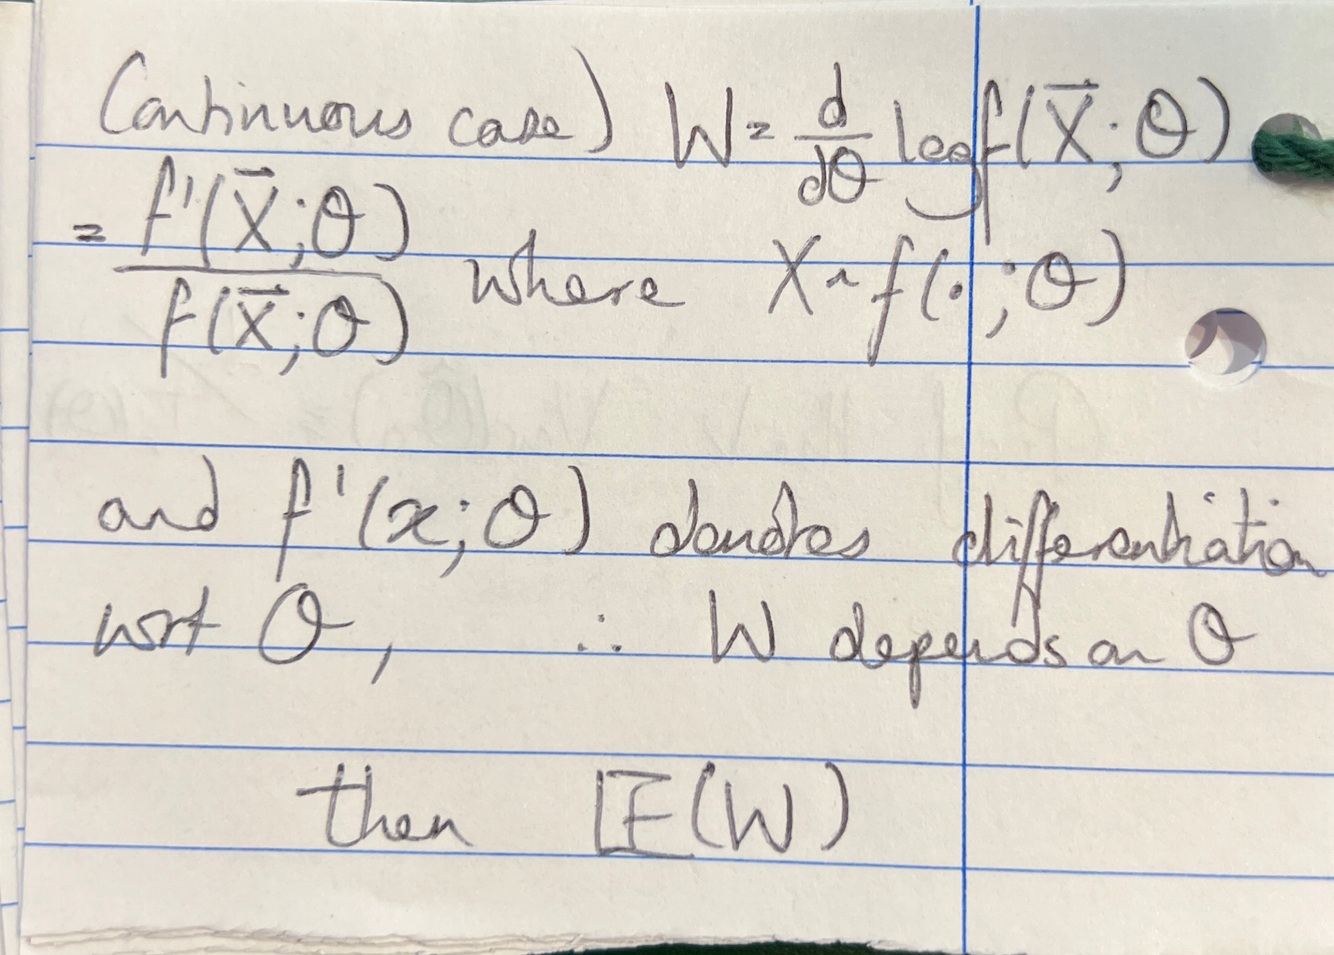 Continuous case) W = d/dθ log f(X⃗; θ)
= f'(X⃗; θ) / f(X⃗; θ) where X ~ f(·; θ)
and f'(x; θ) denotes differentiation
wrt θ, ∴ W depends on θ
then 𝔼(W)